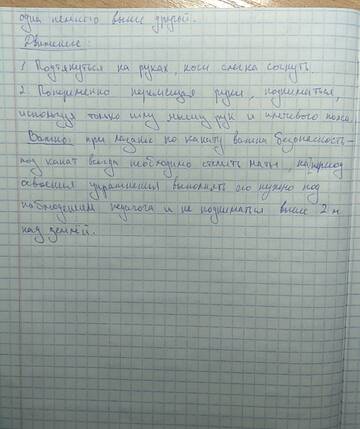 одна немного выше другой.
Движение:
1. Подтянуться на руках, ноги слегка согнуть.
2. Попеременно перемещая руки, подниматься,
используя только силу мышц рук и плечевого пояса.
Важно: при лазанье по канату важна безопасность –
под канат всегда необходимо стелить маты, на период
освоения упражнения выполнять его нужно под
наблюдением педагога и не подниматься выше 2 м
над землёй.